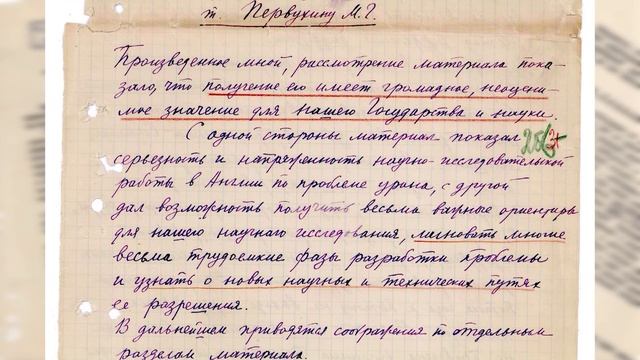 т. Первухину М.Г.
Произведенное мной, рассмотрение материала пока-
зало, что получение его имеет громадное, неоцени-
мое значение для нашего Государства и науки.
С одной стороны материал показал
серьезность и напряженность научно-исследовательской
работы в Англии по проблеме урана, с другой
дал возможность получить весьма важные ориентиры
для нашего научного исследования, миновать многие
весьма трудоемкие фазы разработки проблемы
и узнать о новых научных и технических путях
ее разрешения.
В дальнейшем приводятся соображения по отдельным
разделам материала.